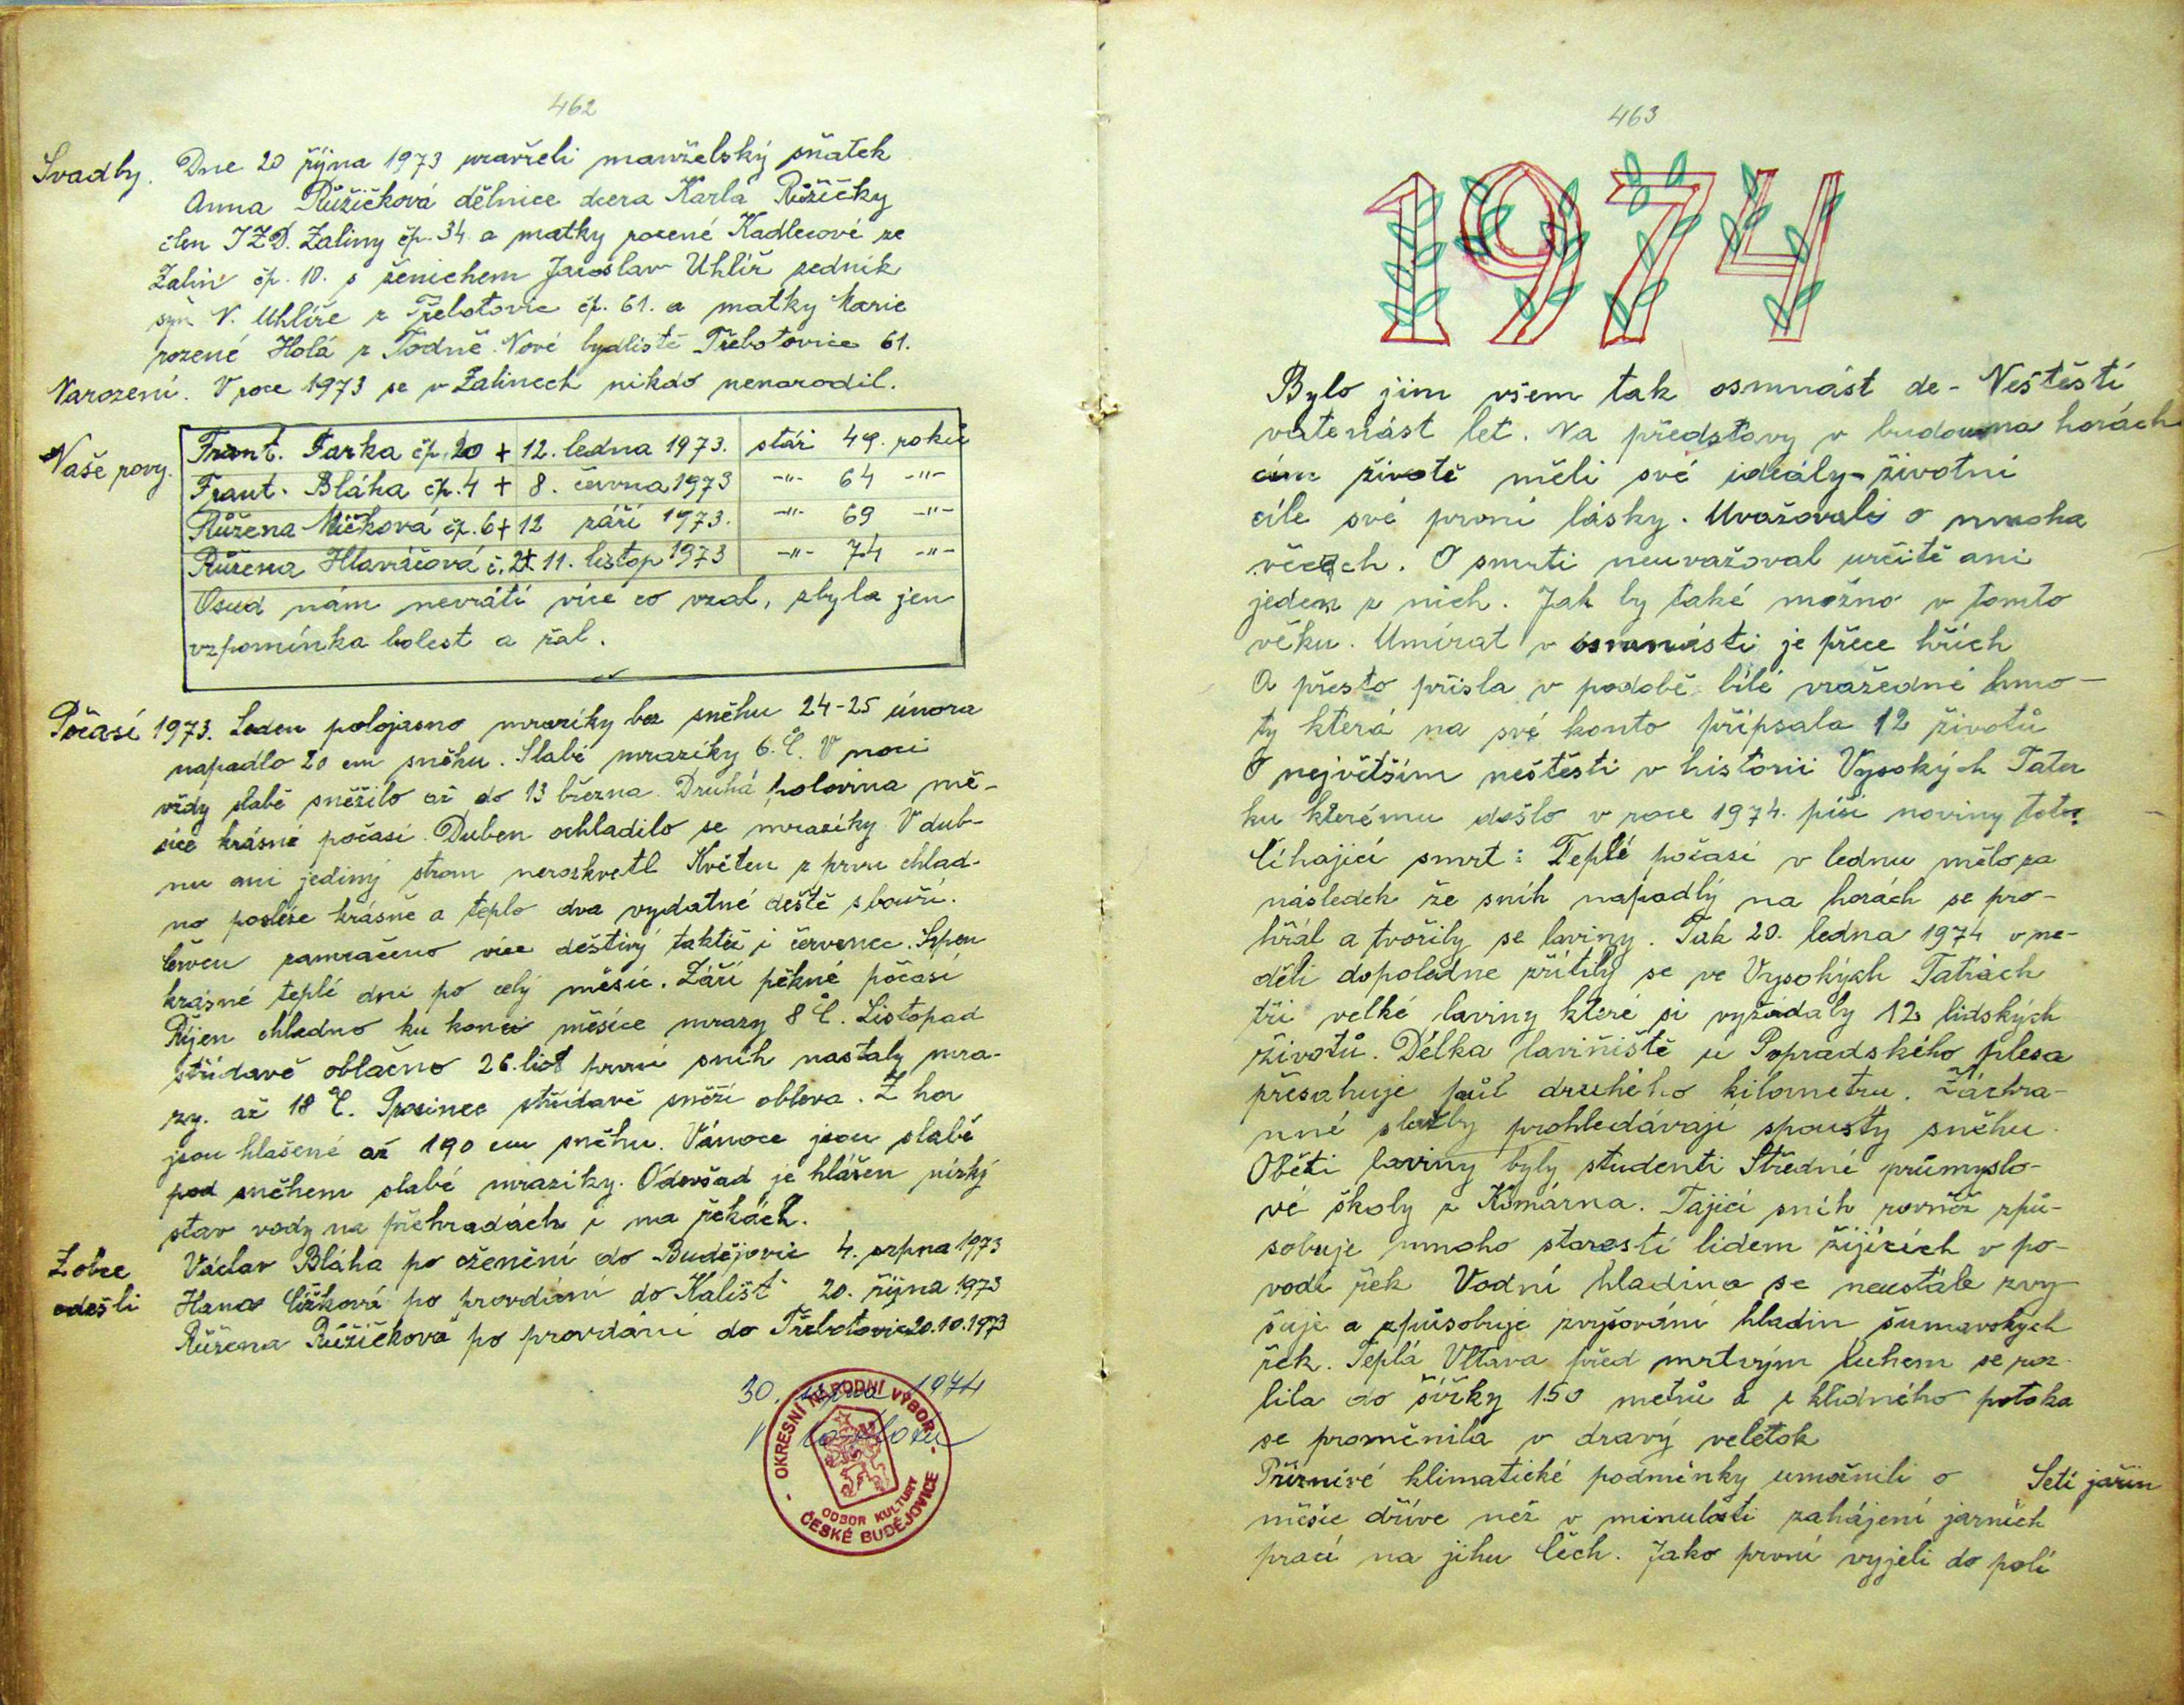 462
Svadby. Dne 20 října 1973 uzavřeli manželský sňatek
Anna Růžičková dělnice dcera Karla Růžičky
člen JZD. Zaliny čp. 34 a matky rozené Kadlecové ze
Zalin čp. 10. s ženichem Jaroslav Uhlíř zedník
syn V. Uhlíře z Třebotovic čp. 61. a matky Marie
rozené Holá z Todně. Nové bydliště Třebotovice 61.
Narození. V roce 1973 se v Zalinech nikdo nenarodil.
Naše rovy. Frant. Farka čp. 20 + 12. ledna 1973. stáří 49. roků
Frant. Bláha čp. 4 + 8. června 1973 -"- 64 -"-
Růžena Mičková čp. 6 + 12 září 1973. -"- 69 -"-
Růžena Hlaváčová č. 2 + 11. listop 1973 -"- 74 -"-
Osud nám nevrátí více co vzal, zbyla jen
vzpomínka bolest a žal.
Počasí 1973. Leden polojasno mrazíky bez sněhu 24-25 února
napadlo 20 cm sněhu. Slabé mrazíky 6.°C. V noci
vždy slabě sněžilo až do 13 března. Druhá polovina mě-
síce krásné počasí. Duben ochladilo se mrazíky V dub-
nu ani jediný strom nerozkvetl Květen z prvu chlad-
no posléze krásně a teplo dva vydatné deště s bouří.
Červen zamračeno více deštivý taktéž i červenec. Srpen
krásné teplé dni po celý měsíc. Září pěkné počasí
Říjen chladno ku konci měsíce mrazy 8°C. Listopad
střídavě oblačno 26. list první sníh nastaly mra-
zy. až 18°C. Prosinec střídavě sněží obleva. Z hor
jsou hlášené až 190 cm sněhu. Vánoce jsou slabě
pod sněhem slabé mrazíky. Odevšad je hlášen nízký
stav vody na přehradách i na řekách.
Z obce Václav Bláha po oženění do Budějovic 4. srpna 1973
odešli Hana Čížková po provdání do Kališť 20. října 1973
Růžena Růžičková po provdání do Třebotovic 20.10.1973
30. 1974
OKRESNÍ NÁRODNÍ VÝBOR
ODBOR KULTURY
ČESKÉ BUDĚJOVICE
463
1974
Bylo jim všem tak osmnást de- Neštěstí
vatenást let. Na představy v budou- na horách
cím životě měli své ideály - životní
cíle své první lásky. Uvažovali o mnoha
věcech. O smrti neuvažoval určitě ani
jeden z nich. Jak by také možno v tomto
věku. Umírat v osmnásti je přece hřích
A přesto přišla v podobě bílé vražedné hmo-
ty která na své konto připsala 12 životů
O největším neštěsti v historii Vysokých Tater
ku kterému došlo v roce 1974. píší noviny toto:
Číhající smrt: Teplé počasí v lednu mělo za
následek že sníh napadlý na horách se pro-
hřál a tvořily se laviny. Tak 20. ledna 1974 v ne-
děli dopoledne zřítily se ve Vysokých Tatrách
tři velké laviny které si vyžádaly 12 lidských
životů. Délka laviniště u Popradského plesa
přesahuje půl druhého kilometru. Záchra-
nné služby prohledávají spousty sněhu
Oběti laviny byly studenti Střední průmyslo-
vé školy z Komárna. Tající sníh rovněž způ-
sobuje mnoho starostí lidem žijících v po-
vodí řek Vodní hladina se neustále zvy
šuje a způsobuje zvyšování hladin šumavských
řek. Teplá Vltava před mrtvým luhem se roz-
lila do šířky 150 metrů a z klidného potoka
se proměnila v dravý veletok
Příznivé klimatické podmínky umožnili o Setí jařin
měsíc dříve než v minulosti zahájení jarních
prací na jihu Čech. Jako první vyjeli do polí